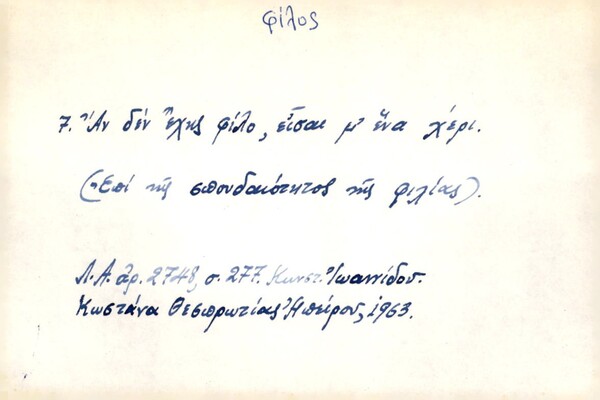 φίλος
7. Ἂν δέν ἔχης φίλο, εἶσαι μ' ἕνα χέρι.
(Ἐπί τῆς σπουδαιότητος τῆς φιλίας).
Λ.Α. ἀρ. 2748, σ. 277. Κωνστ. Ἰωαννίδου.
Κωστάνα Θεσπρωτίας Ἠπείρου, 1963.